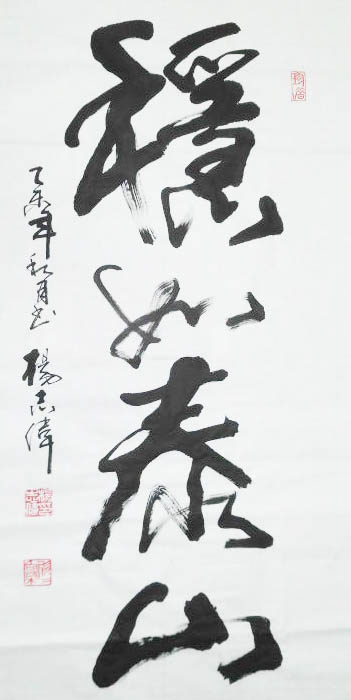 穩如泰山
乙未年秋月書 楊志偉